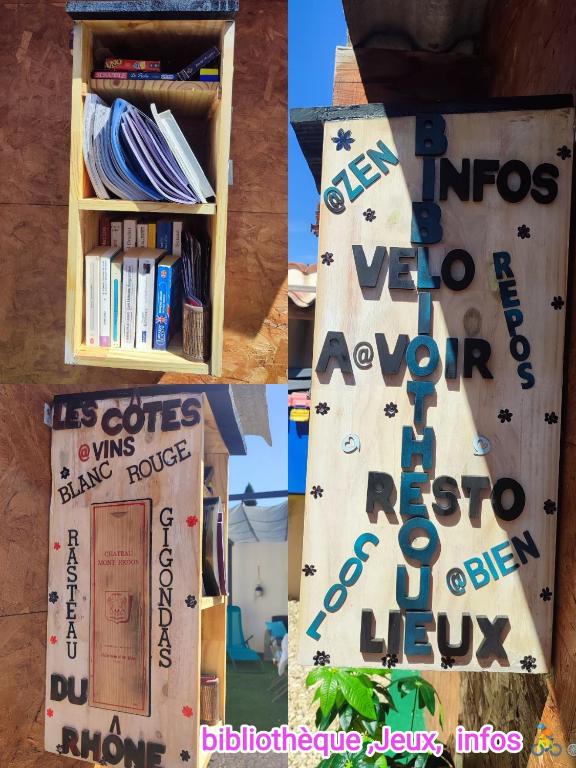 SCRABBLE
BIBLIOTHEQUE
@ZEN
INFOS
VELO
REPOS
A@VOIR
RESTO
COOL
@BIEN
LIEUX
LES CÔTES
@VINS
BLANC ROUGE
RASTEAU
GIGONDAS
CHATEAU
MONT REDON
DU
RHÔNE
bibliothèque ,Jeux, infos